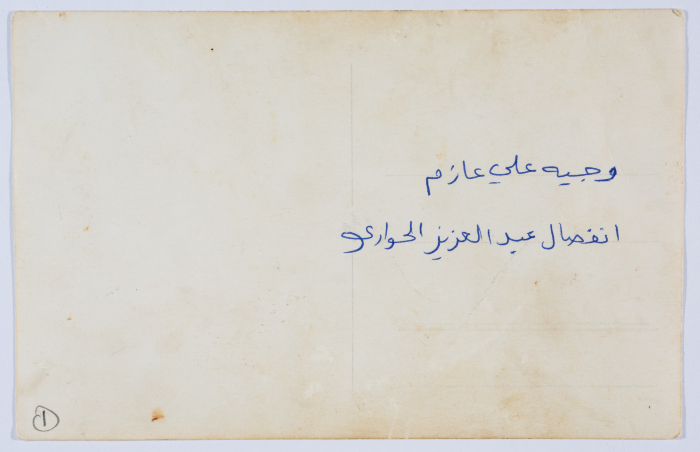 وجيه علي عازم
انفصال عبد العزيز الحواري
١